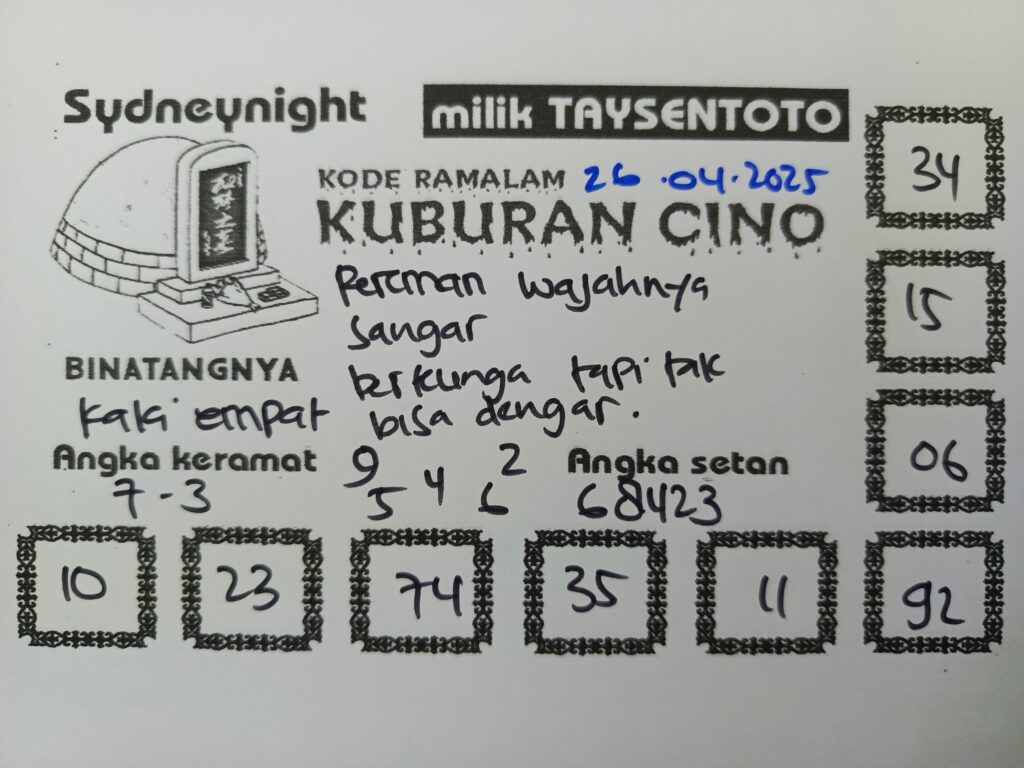 Sydneynight
milik TAYSENTOTO
KODE RAMALAM 26.04.2025
KUBURAN CINO
Preman wajahnya
sangar
berkunga tapi tak
bisa dengar.
BINATANGNYA
kaki empat
Angka keramat
7-3
9 2
5 4 6
Angka setan
68423
34
15
06
10 23 74 35 11 92